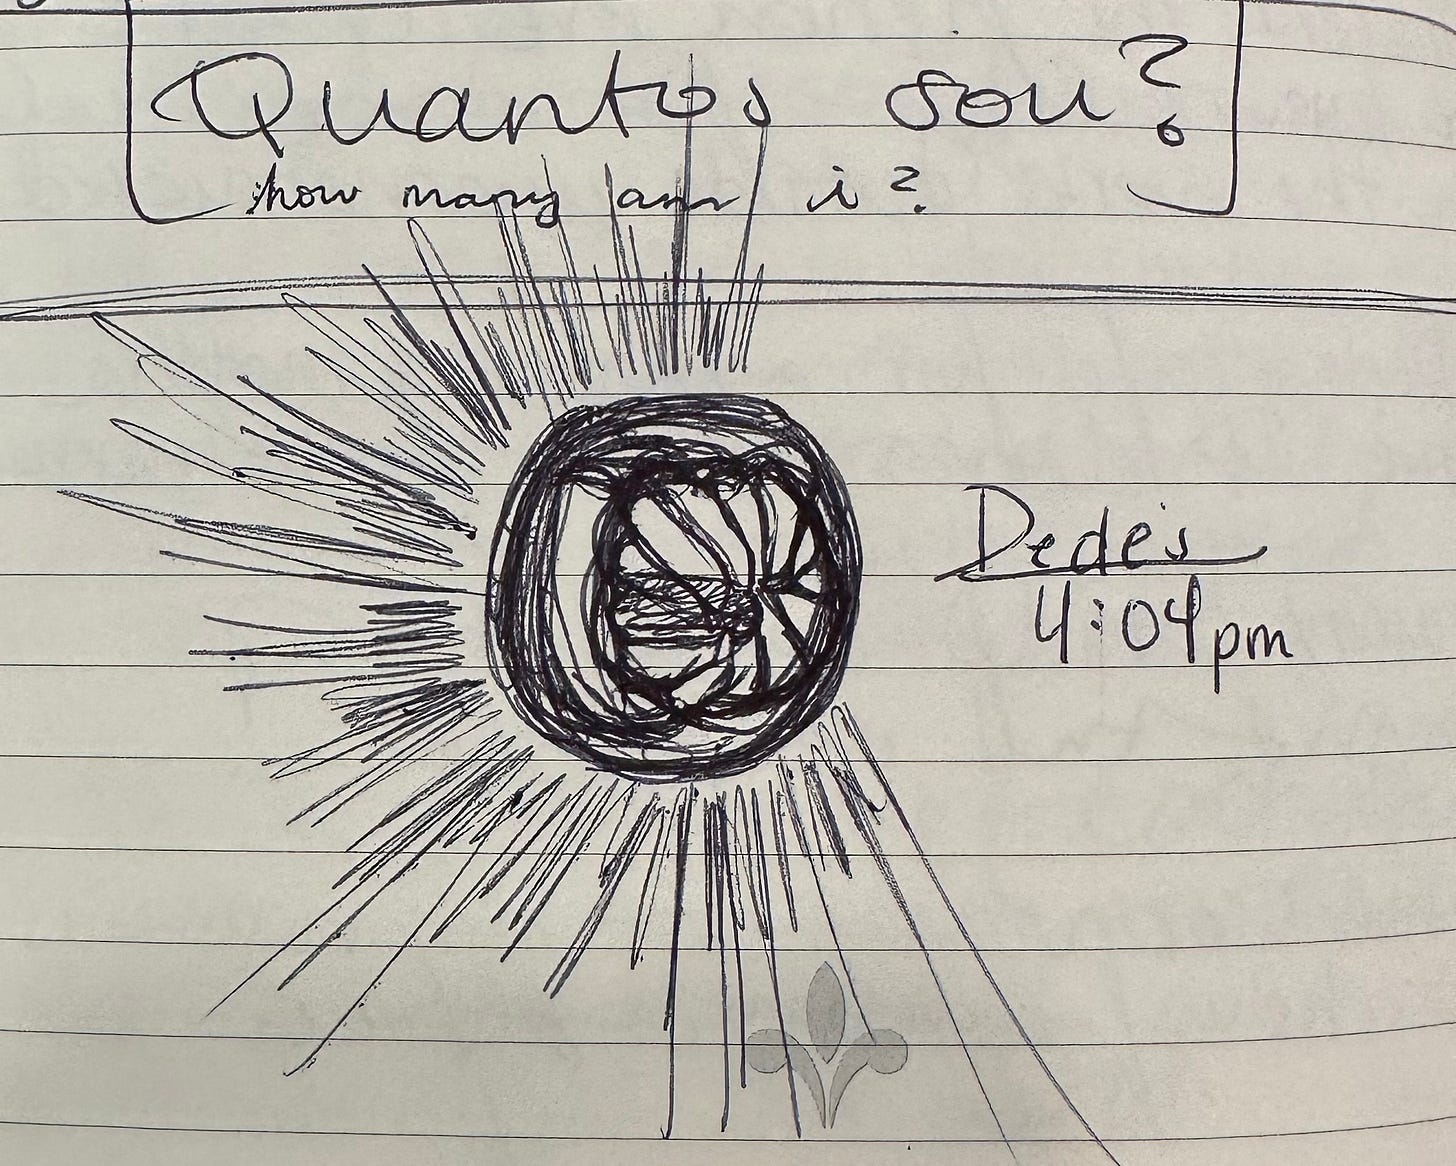 Quantos sou?
how many am i?
Dede's
4:04pm